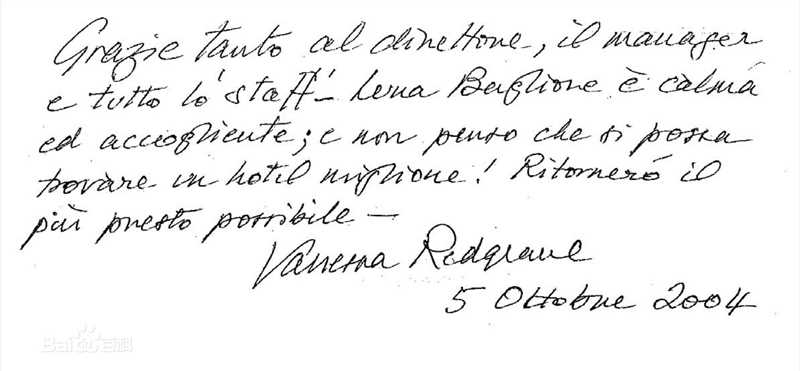 Grazie tanto al direttore, il manager
e tutto lo 'staff' – Luna Baglione è calma
ed accogliente; e non penso che si possa
trovare un hotel migliore! Ritorneró il
più presto possibile –
Vanessa Redgrave
5 Ottobre 2004
Bai百科